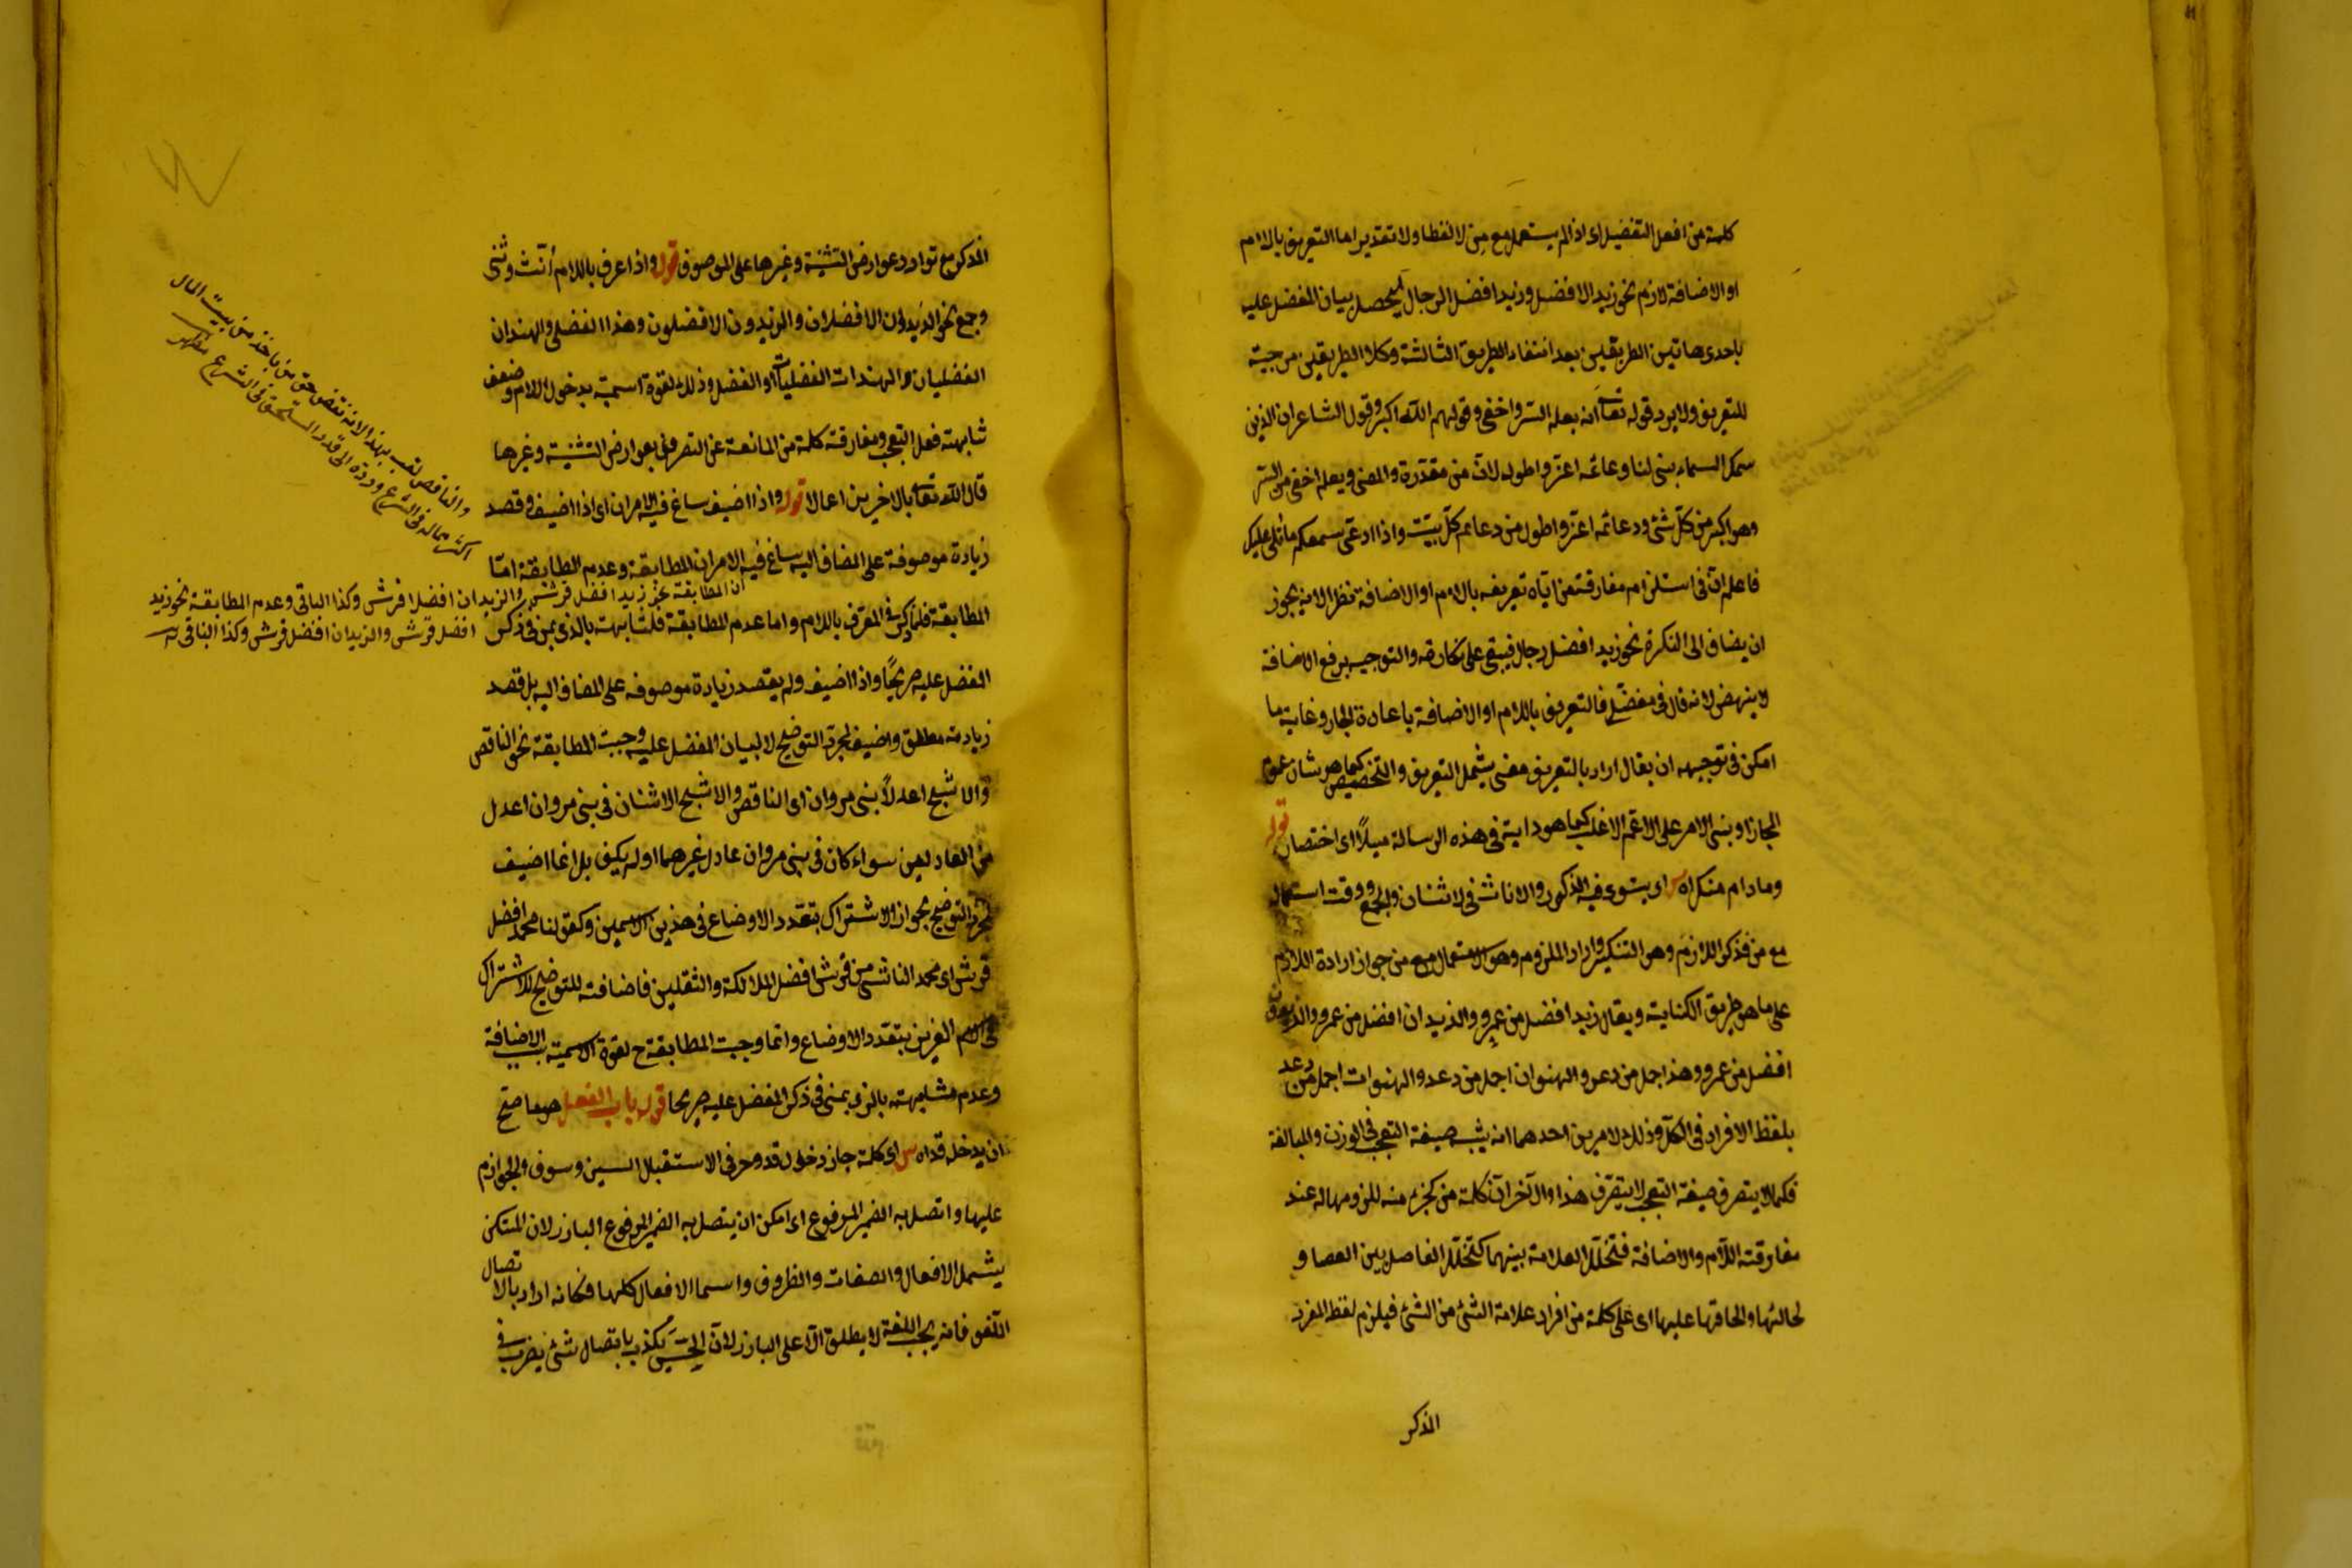 كلمة من افعل التفضيل اى اذا لم يستعمل مع من لا لفظا ولا تقديرا اما التعريف باللام
او الاضافة لازم نحو زيد الافضل وزيد افضل الرجال ليحصل بيان المفضل عليه
باحدى هاتين الطريقين بعد انتفاء الطريق الثالثة وكلا الطريقين موجبة
للتعريف ولا يرد قوله تعا انه يعلم السر واخفى وقولهم الله اكبر وقول الشاعر ان الذى
سمك السماء بنى لنا دعائمه اعز واطول لان من مقدرة والمعنى ويعلم اخفى من السر
وهو اكبر من كل شئ ودعائمه اعز واطول من دعائم كل بيت واذا ادعى سمعكم ما تلى عليك
فاعلم ان فى استلزام مفارقته من اياه تعريفه باللام او الاضافة نظرا لانه يجوز
ان يضاف الى النكرة نحو زيد افضل رجل فيبقى على نكارته والتوجيه برفع الاضافة
لا ينهض لانه قال فى مفصل فالتعريف باللام او الاضافة باعادة الجار وغاية ما
امكن فى توجيهه ان يقال اراد بالتعريف معنى يشمل التعريف والتخصيص كما هو شان عموم
المجاز او بنى الامر على الاعم الاغلب كما هو دابه فى هذه الرسالة ميلا اى اختصار قوله
وما دام منكرا اه س اى يستوى فيه الذكور والاناث فى الاثنان والجمع ووقت استعمال
مع من فذكر اللازم وهو التنكير واراد الملزوم وهو الاستعمال مع من جواز ارادة اللازم
على ما هو طريق الكناية ويقال زيد افضل من عمرو والزيدان افضل من عمرو والزيدون
افضل من عمرو وهند اجمل من دعد والهندان اجمل من دعد والهندات اجمل من دعد
بلفظ الافراد فى الكل وذلك لامرين احدهما انه يشبه صيغة التعجب فى الوزن والمبالغة
فكما لا يتصرف صيغة التعجب لا يتصرف هذا والآخر ان كلمة من كجزء منه للزومها له عند
مفارقته اللام والاضافة فتخلل العلامة بينهما كتخلل الفاصل بين العصا و
لحائها والحاقها عليها اى على كلمة من افراد علامة الشئ من الشئ فيلزم لفظ المفرد
المذكر
المذكر مع توارد عوارض التثنية وغيرها على الموصوف قوله واذا عرف باللام أنث وثنى
وجمع نحو الزيدان الافضلان والزيدون الافضلون وهند الفضلى والهندان
الفضليان والهندات الفضليات او الفضل وذلك لقوة اسمية بدخول اللام وضعف
شابهته فعل التعجب ومفارقته كلمة من المانعة عن التصرف بعوارض التثنية وغيرها
قال الله تعا بالاخرين اعمالا قوله واذا اضيف ساغ فيه الامران اى اذا اضيف وقصد
زيادة موصوفة على المضاف اليه ساغ فيه الامران المطابقة وعدم المطابقة اما
المطابقة فلما ذكر فى المعرف باللام واما عدم المطابقة فلشابهته بالذى بمن فى ذكر
المفضل عليه صريحا واذا اضيف ولم يقصد زيادة موصوفه على المضاف اليه بل قصد
زيادته مطلق واضيف لمجرد التوضيح لا لبيان المفضل عليه وجبت المطابقة نحو الناقص
والاشج اعدلا بنى مروان اى الناقص والاشج الاثنان فى بنى مروان اعدل
من العادلين سواء كان فى بنى مروان عادل غيرهما او لم يكن بل انما اضيف
لمجرد التوضيح بجواز الاشتراك بتعدد الاوضاع فى هذين الاسمين وكقولنا محمد افضل
قريش اى محمد الناشئ من قريش افضل الملائكة والثقلين فاضافته للتوضيح للاشتراك
فى الاسم العزيز بتعدد الاوضاع وانما وجبت المطابقة ح لقوة الاسمية بسبب الاضافة
وعدم مشابهته بالذى بمن فى ذكر المفضل عليه صريحا قوله باب الفعل هو ما صح
ان يدخله قد اه س اى كلمة جاز دخول قد وحرفى الاستقبال السين وسوف والجوازم
عليها واتصل به الضمير المرفوع اى امكن ان يتصل به الضمير المرفوع البارز لان المستكن
يشمل الافعال والصفات والظروف واسما الافعال كلها فكانه اراد بالاتصال
اللغوى فانه يجب اللغة لا يطلق الا على البارز لان الحس يكذب باتصال شئ بضرب فى
والناقص لقب بهذا لانه نقص حق من ياخذ من بيت المال
اكثر مماله فى الشرع ورده الى قدر المستحق فى الشرع
ان المطابقة نحو زيد افضل قريش والزيدان افضلا قريش وكذا الباقى وعدم المطابقة نحو زيد
افضل قريش والزيدان افضل قريش وكذا الباقى